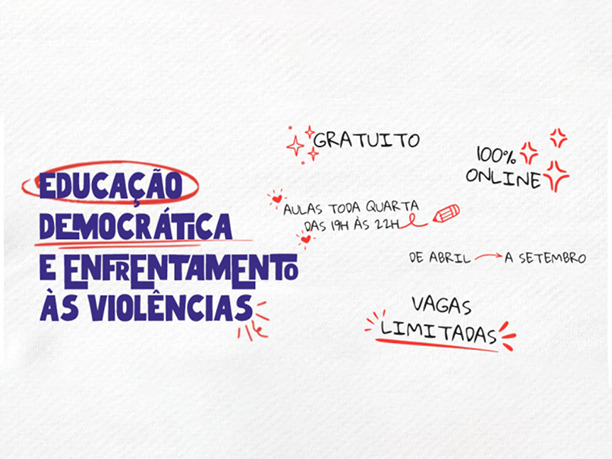 EDUCAÇÃO
DEMOCRÁTICA
E ENFRENTAMENTO
ÀS VIOLÊNCIAS
GRATUITO
100%
ONLINE
AULAS TODA QUARTA
DAS 19H ÀS 22H
DE ABRIL A SETEMBRO
VAGAS
LIMITADAS